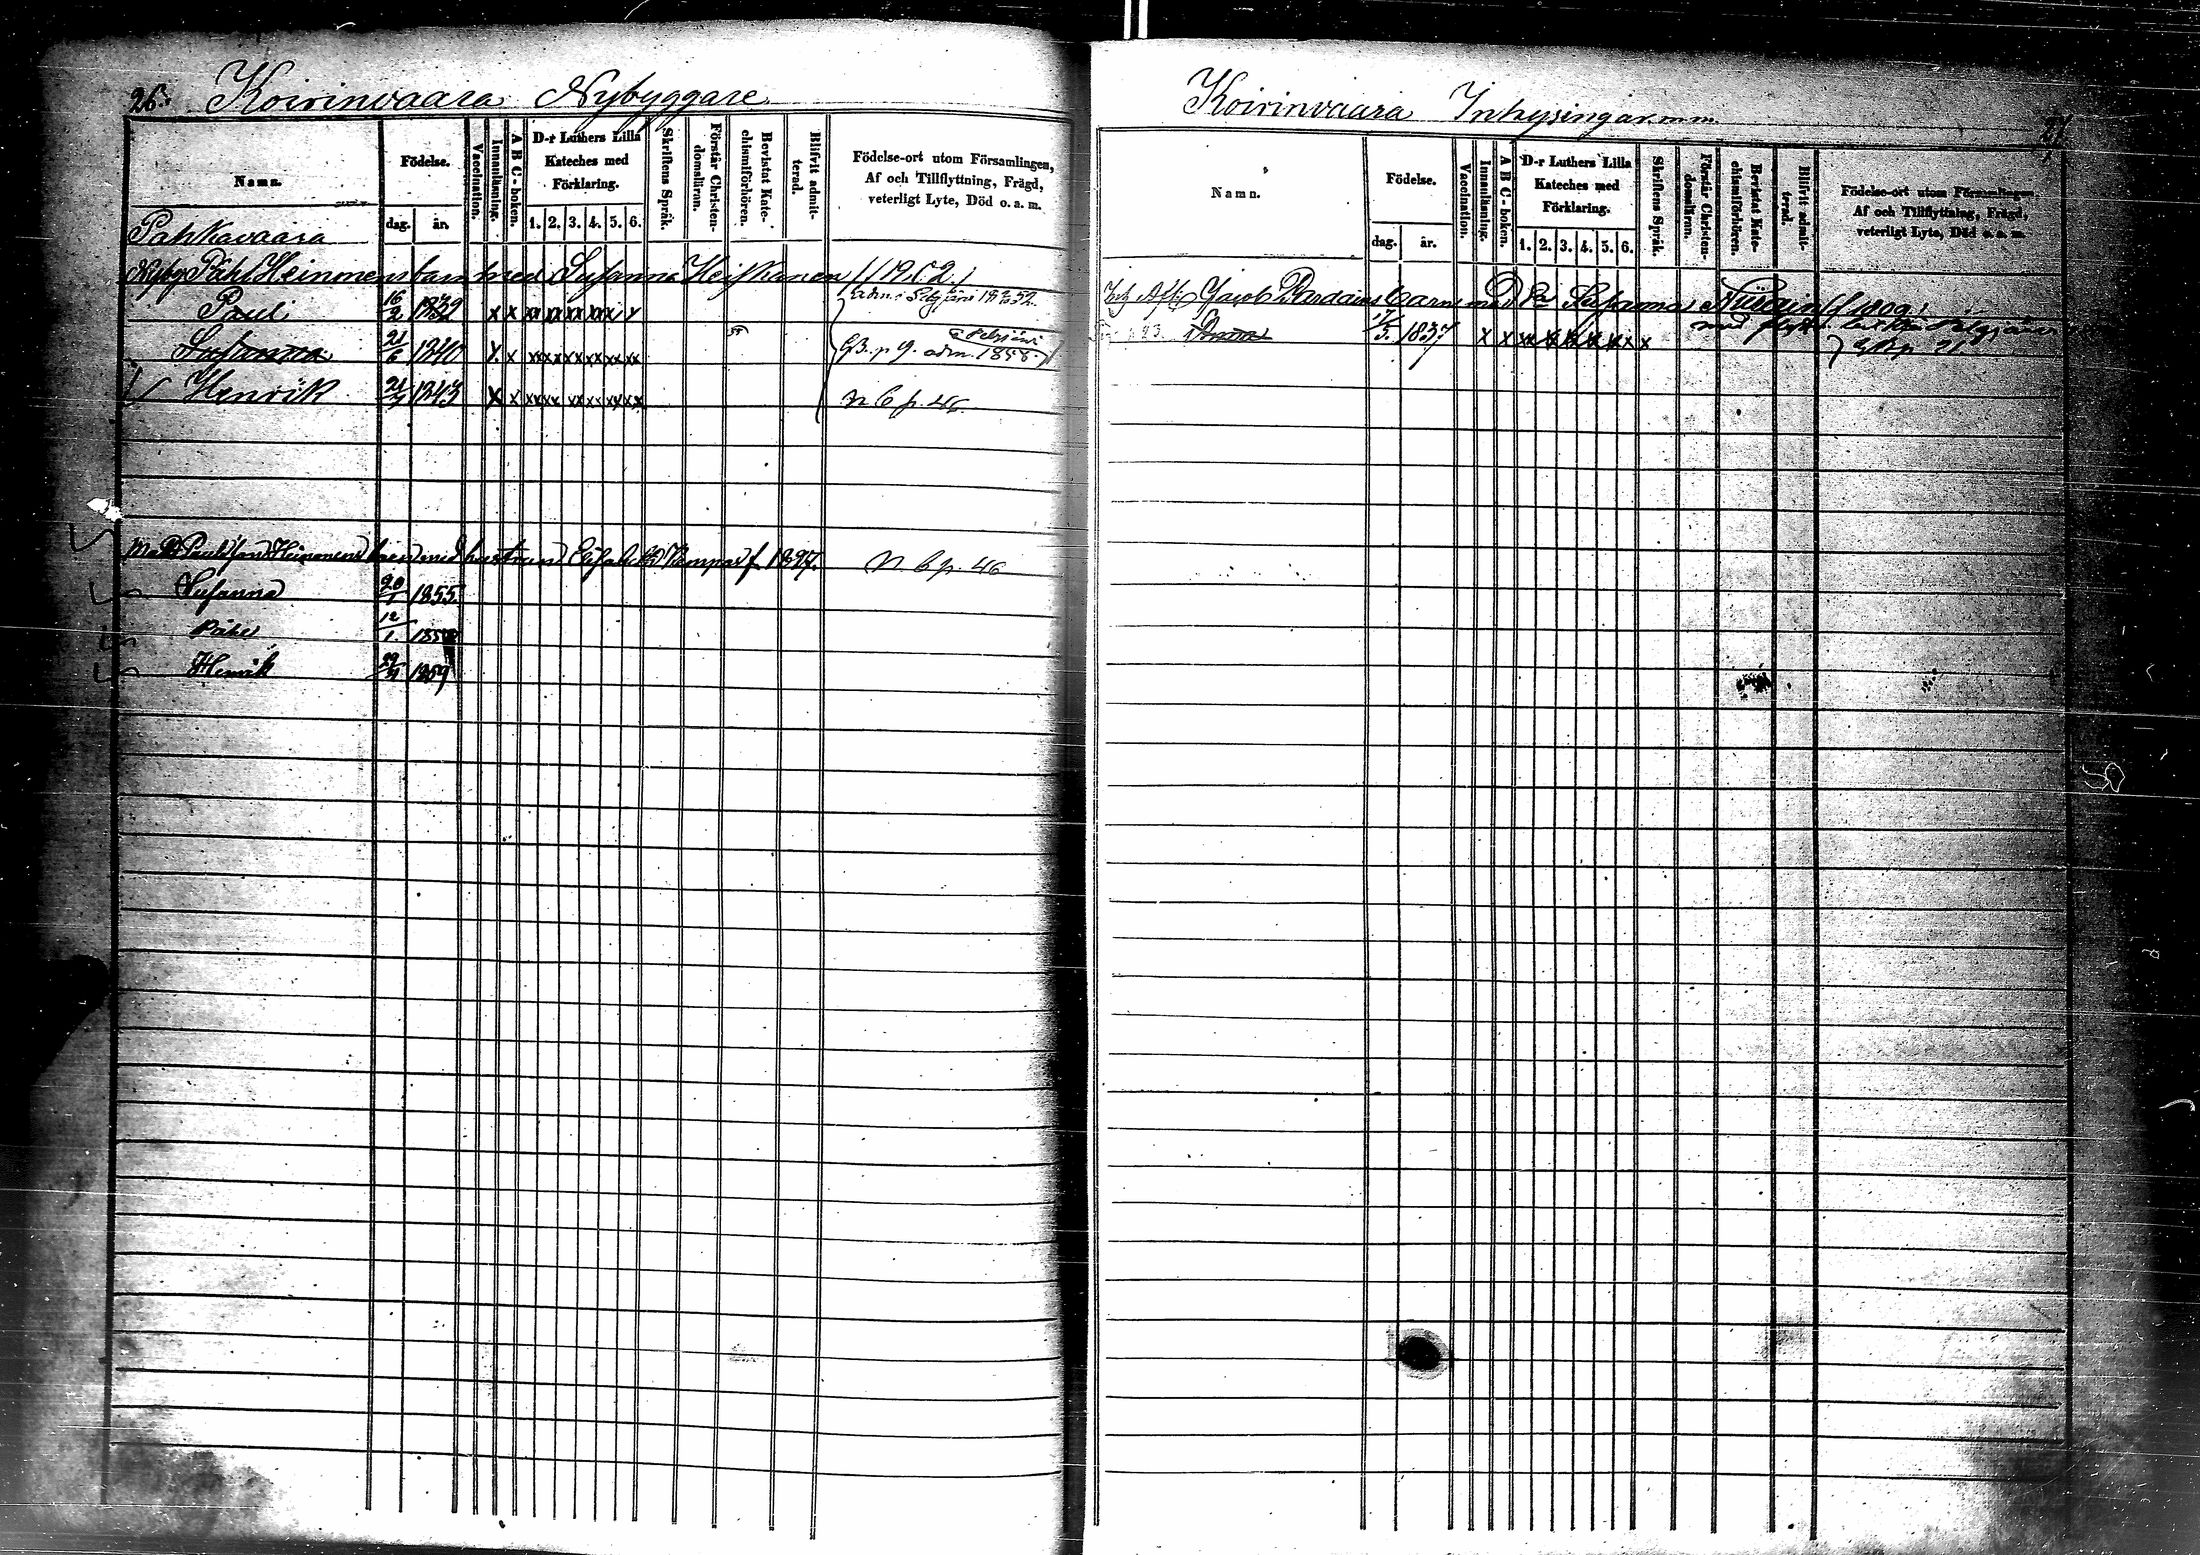 26. Koirinvaara Nybyggare
Namn. Födelse. Vaccination. Innanläsning. A B C-boken. D-r Luthers Lilla Kateches med Förklaring. Skriftens Språk. Förstår Christendomsläran. Bevistat Katechismiförhören. Blifvit admitterad. Födelse-ort utom Församlingen, Af och Tillflyttning, Frägd, veterligt Lyte, Död o. a. m.
dag. år. 1. 2. 3. 4. 5. 6.
Pahkavaara
Nybyg Påhl Heinmens barn med Susanna Heiskanen
Paul 16/2 1839 x x xx xx xx xx x
Susanna 21/6 1840 x x xx xx xx xx xx xx p. 9. adm. 1858.
Henrik 21 1843 x x xx xx xx xx xx xx N 6 p. 46
barn med hustrun f. 1827. N. 6 p. 46
Susanna 20/1 1855
Påhl 12/1. 185
Henrik 1859
Koirinvaara Inhysingar m m
27
Namn. Födelse. Vaccination. Innanläsning. A B C-boken. D-r Luthers Lilla Kateches med Förklaring. Skriftens Språk. Förstår Christendomsläran. Bevistat Katechismiförhören. Blifvit admitterad. Födelse-ort utom Församlingen, Af och Tillflyttning, Frägd, veterligt Lyte, Död o. a. m.
dag. år. 1. 2. 3. 4. 5. 6.
Jacob Pardains barn med Susanna f 1809
Anna 17/5. 1837 x x xx xx xx xx xx x x p. 21